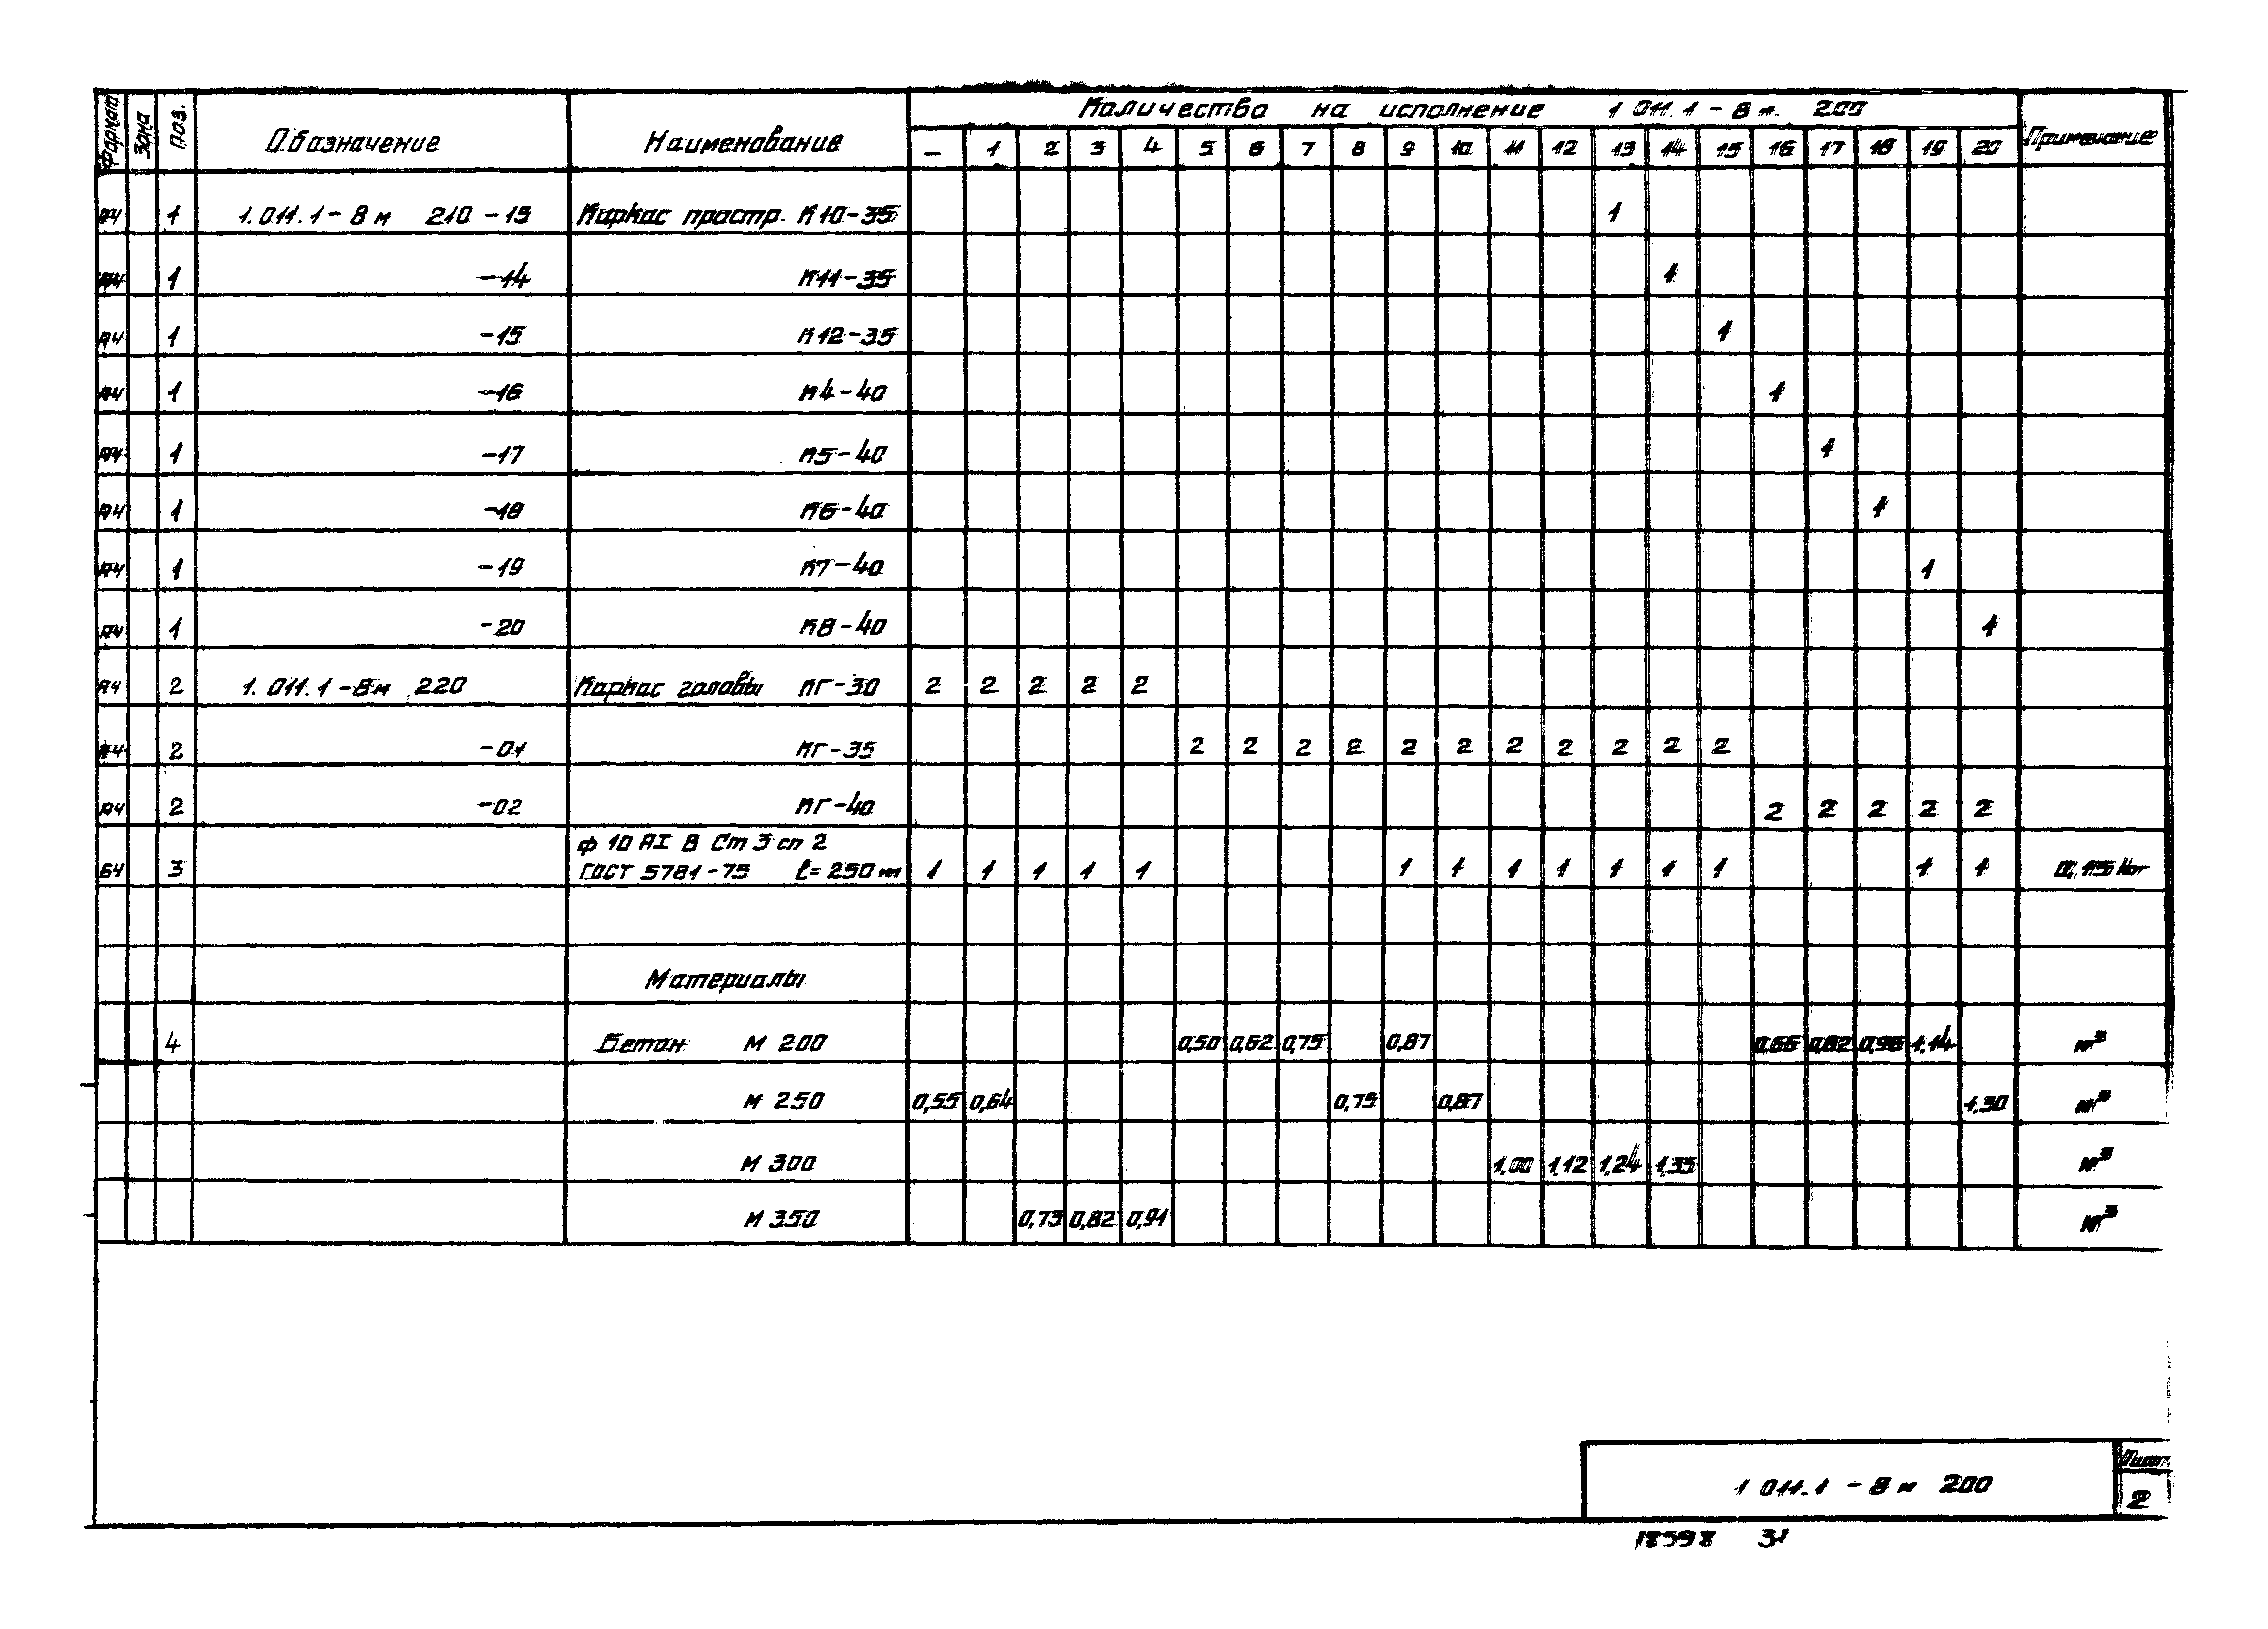 Формат Зона Поз. Обозначение Наименование Количества на исполнение 1 011.1 - 8 м. 200 Примечание
– 1 2 3 4 5 6 7 8 9 10 11 12 13 14 15 16 17 18 19 20
А4 1 1.011.1 - 8 м 210 - 13 Каркас простр. К10-35 1
А4 1 -14 К11-35 1
А4 1 -15 К12-35 1
А4 1 -16 К4-40 1
А4 1 -17 К5-40 1
А4 1 -18 К6-40 1
А4 1 -19 К7-40 1
А4 1 -20 К8-40 1
А4 2 1.011.1 - 8м 220 Каркас головы КГ-30 2 2 2 2 2
А4 2 -01 КГ-35 2 2 2 2 2 2 2 2 2 2 2
А4 2 -02 КГ-40 2 2 2 2 2
ф 10 АI В Ст 3 сп 2
БЧ 3 ГОСТ 5781-75 ℓ= 250 мм 1 1 1 1 1 1 1 1 1 1 1 1 1 1
Материалы
4 Бетон М 200 0,50 0,62 0,75 0,87 0,66 0,82 0,98 1,14 м³
М 250 0,55 0,64 0,75 0,87 1,30 м³
М 300 1,00 1,12 1,24 1,35 м³
М 350 0,73 0,82 0,91 м³
1 011.1 - 8 м 200 Лист
2
18598 31